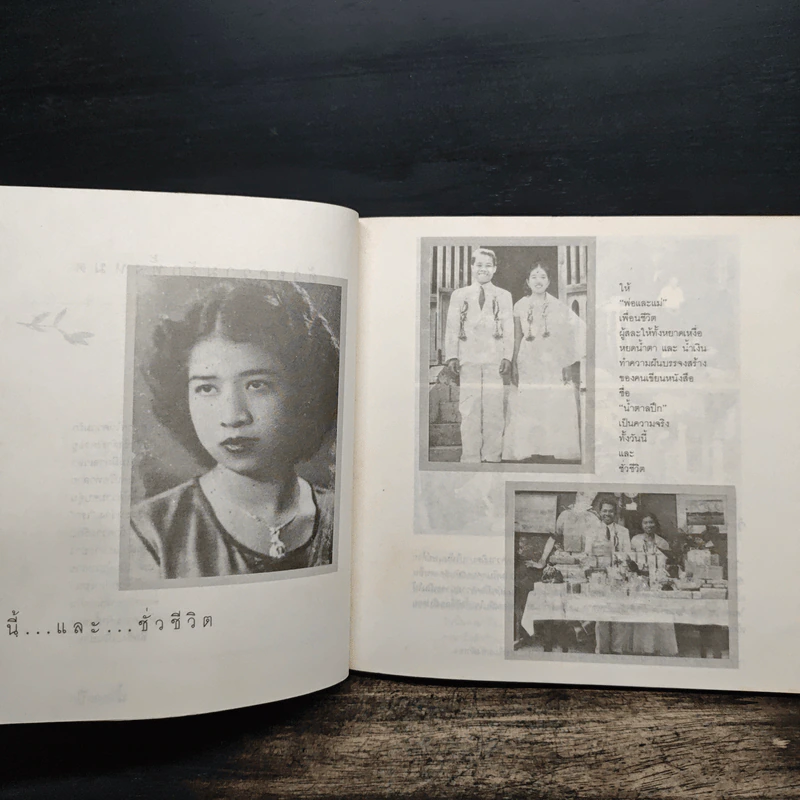 นี้...และ...ชั่วชีวิต
ให้
"พ่อและแม่"
เพื่อนชีวิต
ผู้สละให้ทั้งหยาดเหงื่อ
หยดน้ำตา และ น้ำเงิน
ทำความฝันบรรจงสร้าง
ของคนเขียนหนังสือ
ชื่อ
"น้ำตาลปึก"
เป็นความจริง
ทั้งวันนี้
และ
ชั่วชีวิต